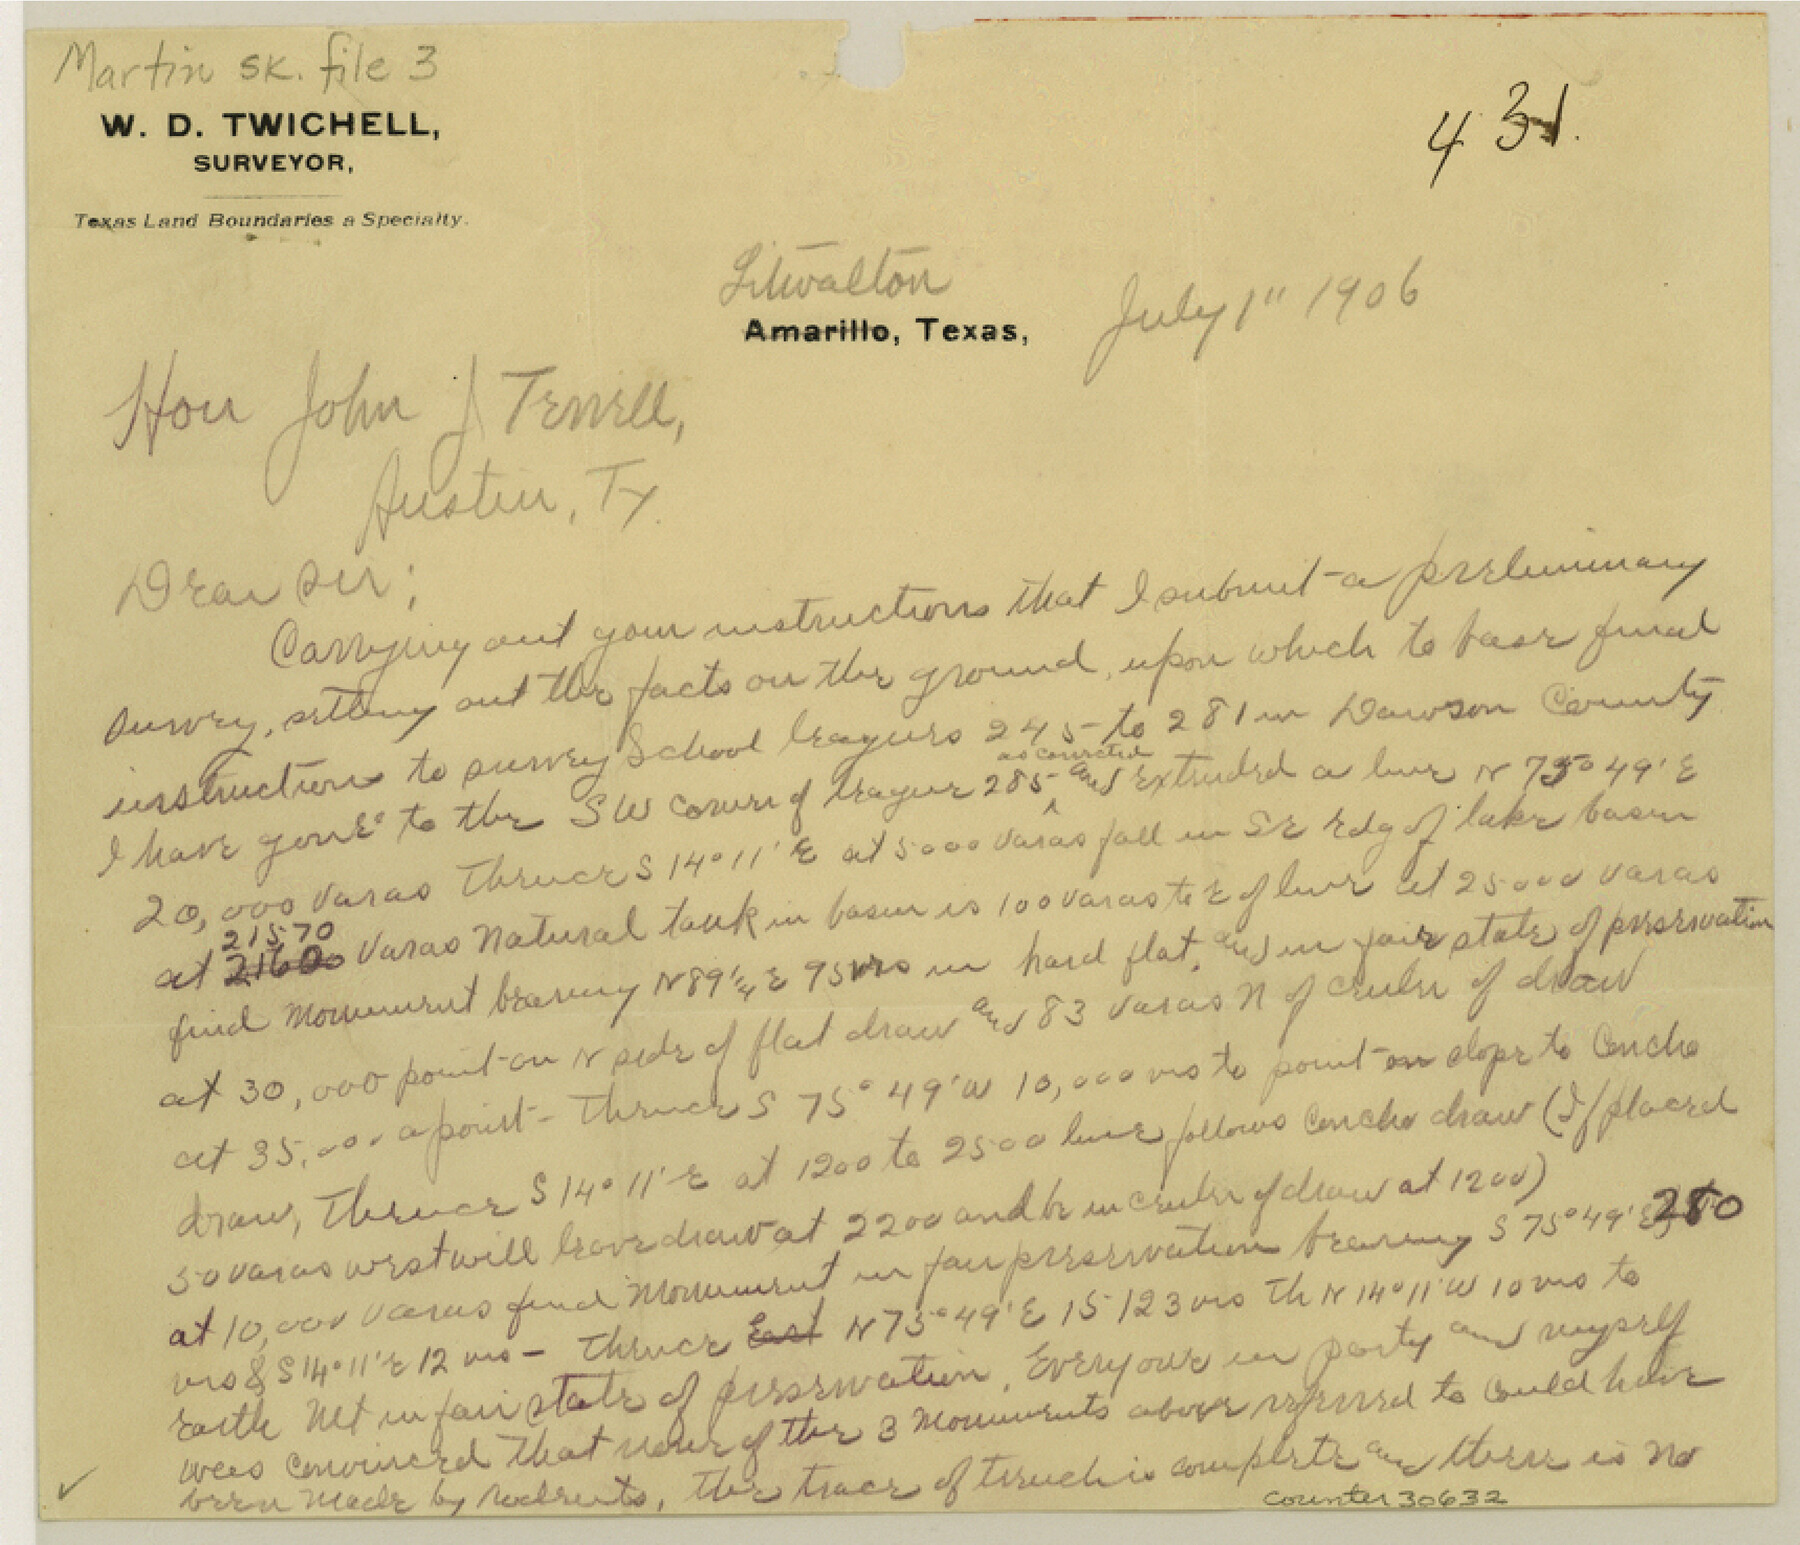 Martin sk. file 3
W. D. TWICHELL,
SURVEYOR,
Texas Land Boundaries a Specialty.
431.
Litwalton
Amarillo, Texas,
July 1" 1906
Hon John J Terrell,
Austin, Tx.
Dear Sir;
Carrying out your instructions that I submit a preliminary
survey, setting out the facts on the ground, upon which to base final
instruction to survey School leagues 245 to 281 in Dawson County
I have gone to the SW corner of league 285 as corrected and extended a line N 75° 49' E
20,000 varas Thence S 14° 11' E at 5000 varas fall in SE edg of lake basin
at 21600 21570 varas Natural tank in basin is 100 varas to E of line at 25000 varas
find Monument bearing N 89 1/4 E 95 vrs in hard flat, and in fair state of preservation
at 30,000 point on N side of flat draw and 83 varas N of center of draw
at 35,000 a point - Thence S 75° 49' W 10,000 vrs to point on slope to Concho
draw, Thence S 14° 11' E at 1200 to 2500 line follows Concho draw (If placed
50 varas west will leave draw at 2200 and be in center of draw at 1200)
at 10,000 varas find Monument in fair preservation bearing S 75° 49' E 280
vrs & S 14° 11' E 12 vrs - Thence East N 75° 49' E 15123 vrs Th N 14° 11' W 10 vrs to
Earth Mt in fair state of preservation. Everyone in party and myself
was convinced that none of the 3 Monuments above referred to could have
been made by rodents, the trace of trench is complete and there is no
counter 30632